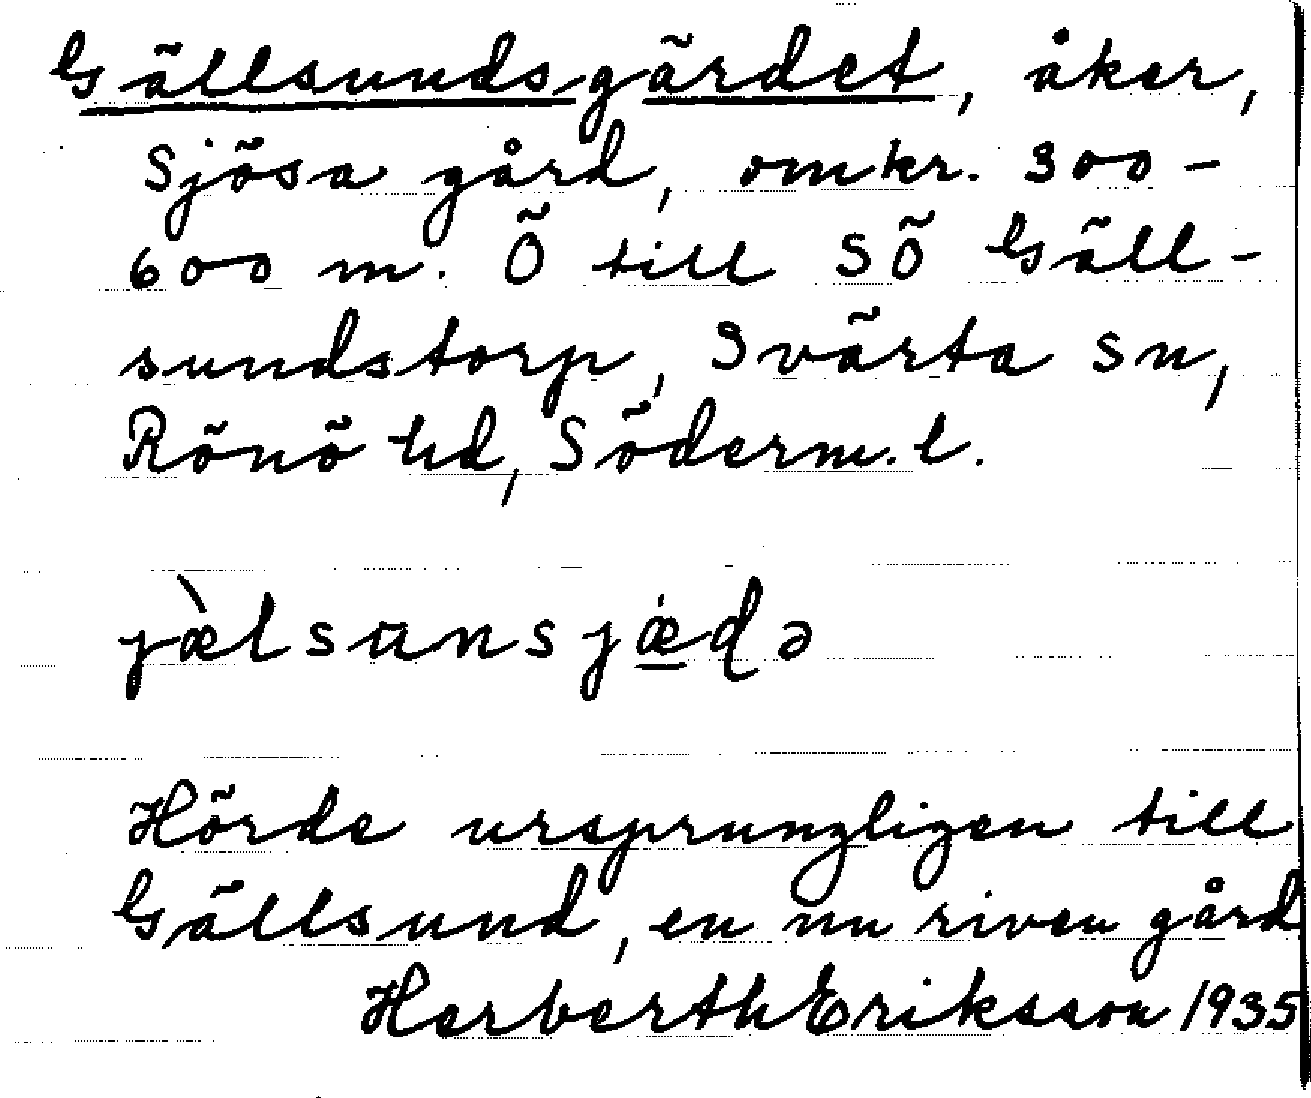 Gällsundsgärdet, åker,
Sjösa gård, omkr. 300-
600 m. Ö till SÖ Gäll-
sundstorp, Svärta sn,
Rönö hd, Söderm. l.
jæ̀lsunsjǽḍə
Hörde ursprungligen till
Gällsund, en nu riven gård
Herberth Eriksson 1935